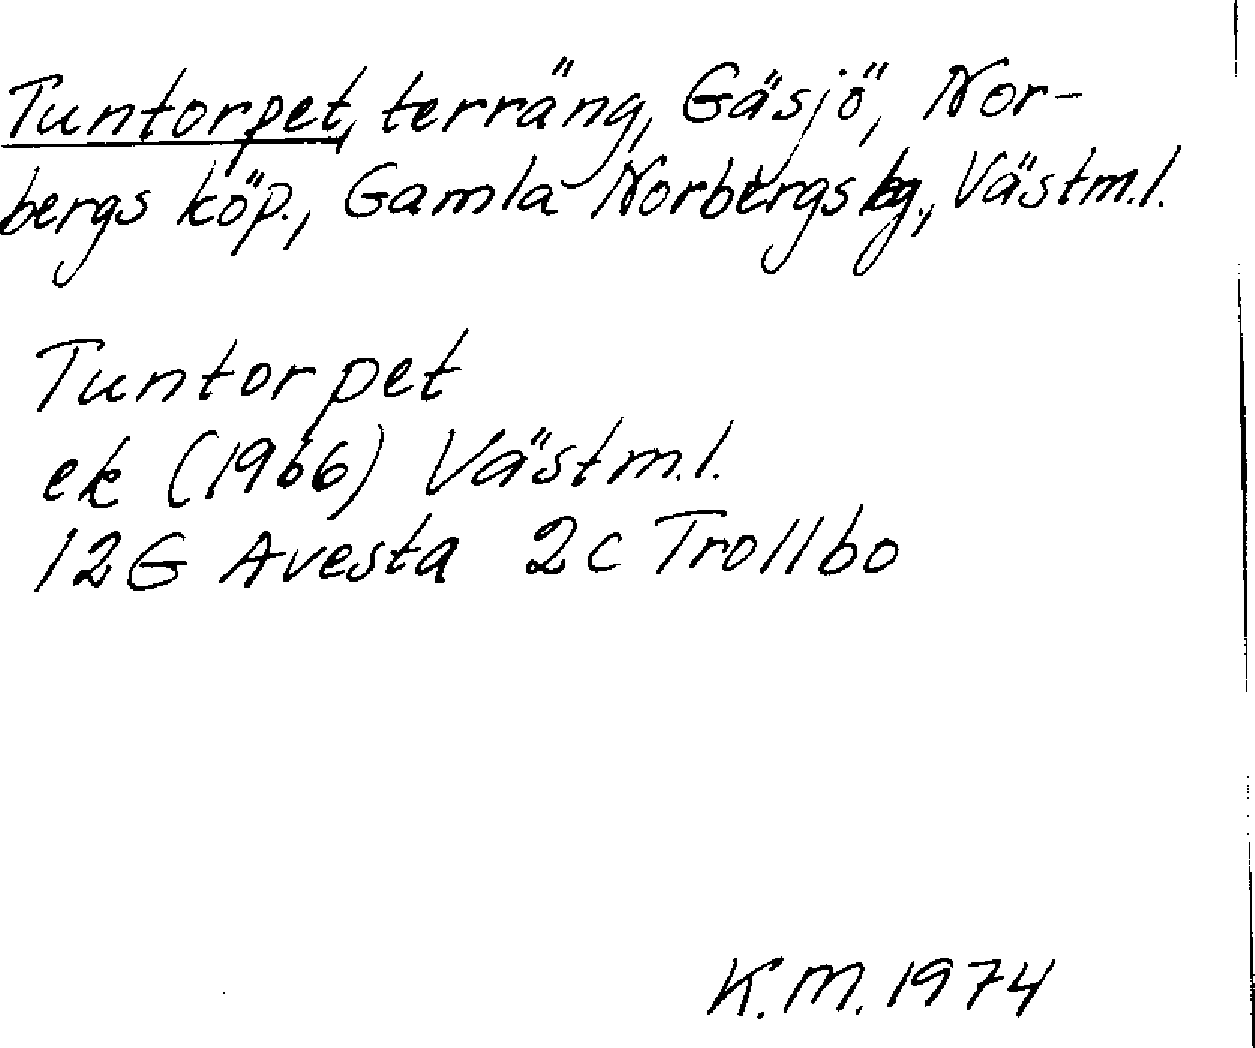 Tuntorpet, terräng, Gäsjö, Nor-
bergs köp., Gamla Norbergs bg., Västm.l.
Tuntorpet
ek (1966) Västm.l.
12G Avesta 2c Trollbo
K.M. 1974